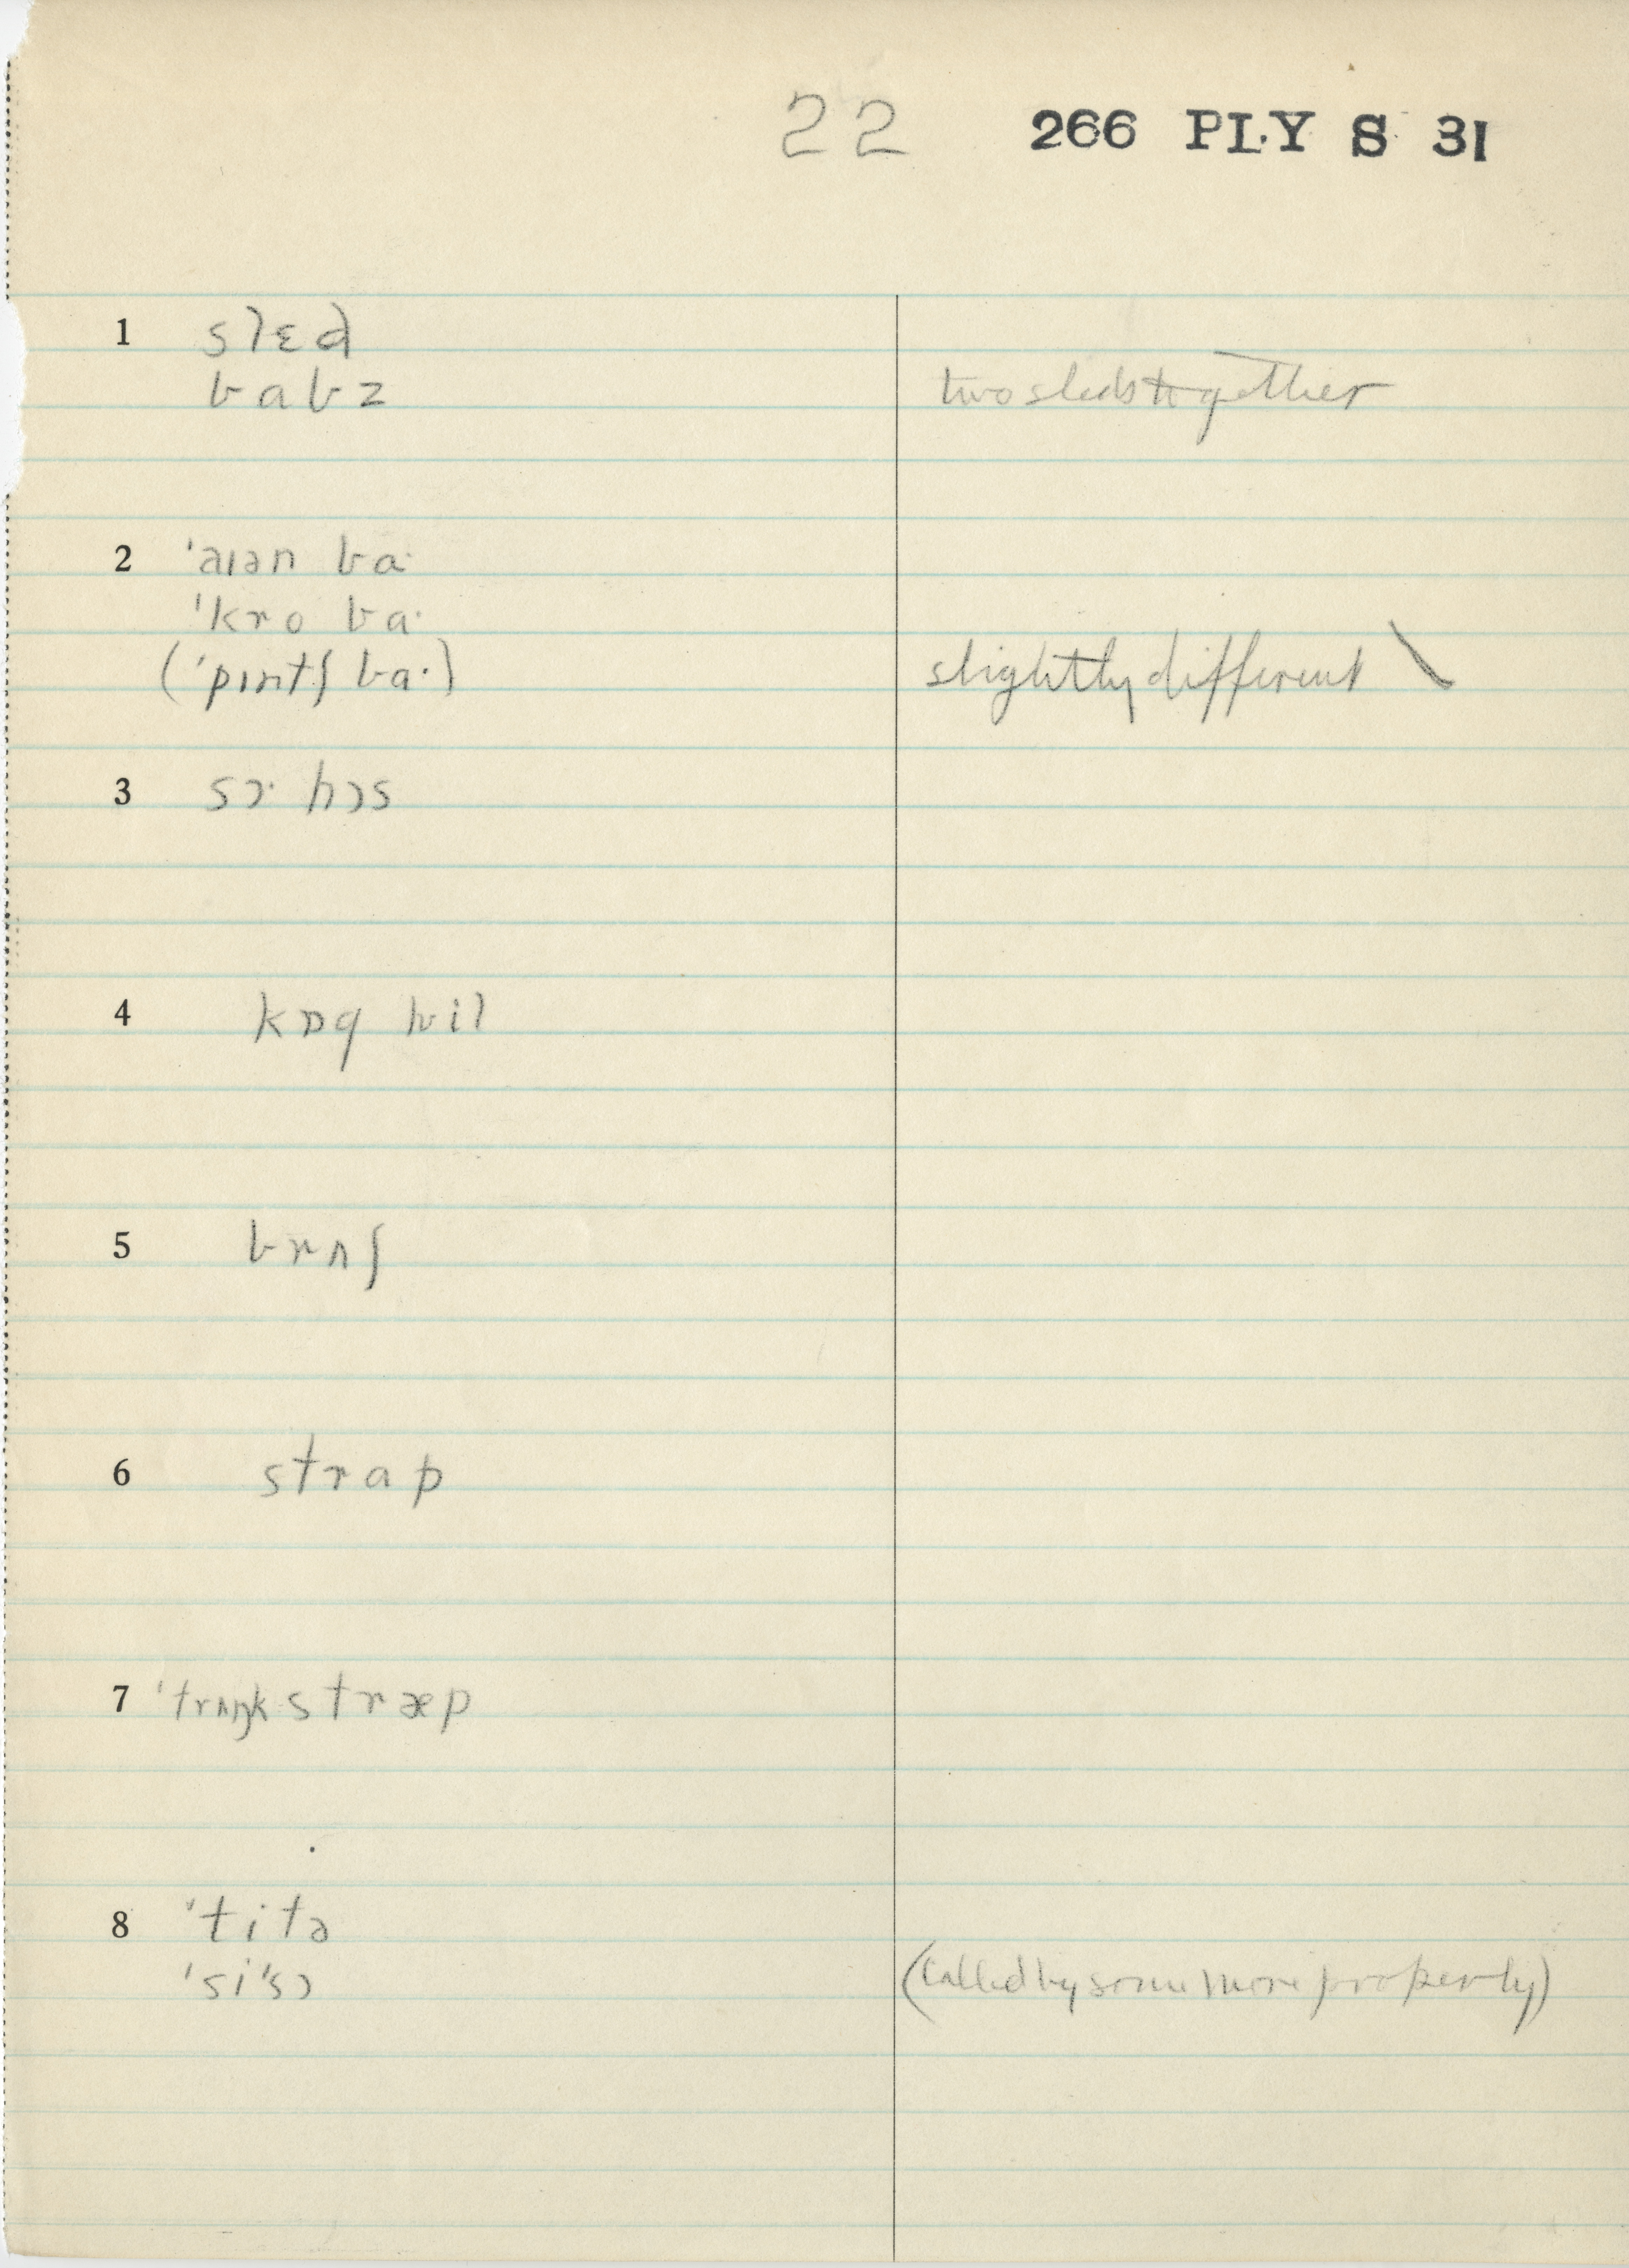 22 266 PLY S 31
1 slɛd
babz two sleds together
2 ˈaɪən ba·
ˈkro ba·
(ˈpɪntʃ ba·) slightly different \
3 sɔ· hɔs
4 kɒg wil
5 brʌʃ
6 strap
7 ˈtrʌŋk stræp
8 ˈtitə
ˈsiˈsɔ (called by some more properly)